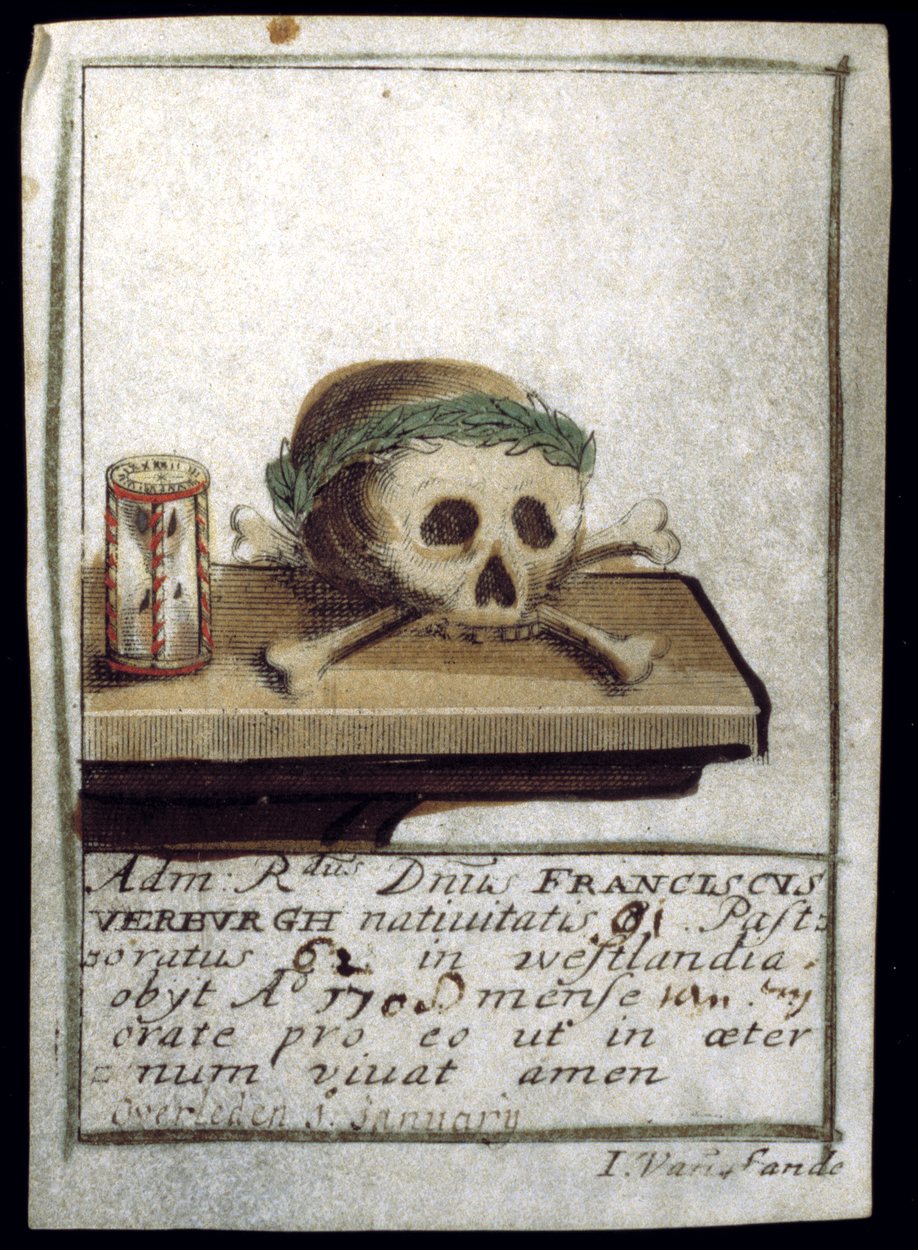 Adm: Rdus Dnũs FRANCISCVS
VERBVRGH natiuitatis 61 Paſt=
=oratus 62 in weſtlandia.
obyt Ao 170 menſe
orate pro eo ut in æter
= num viuat amen
overleden 3. january
I. Van